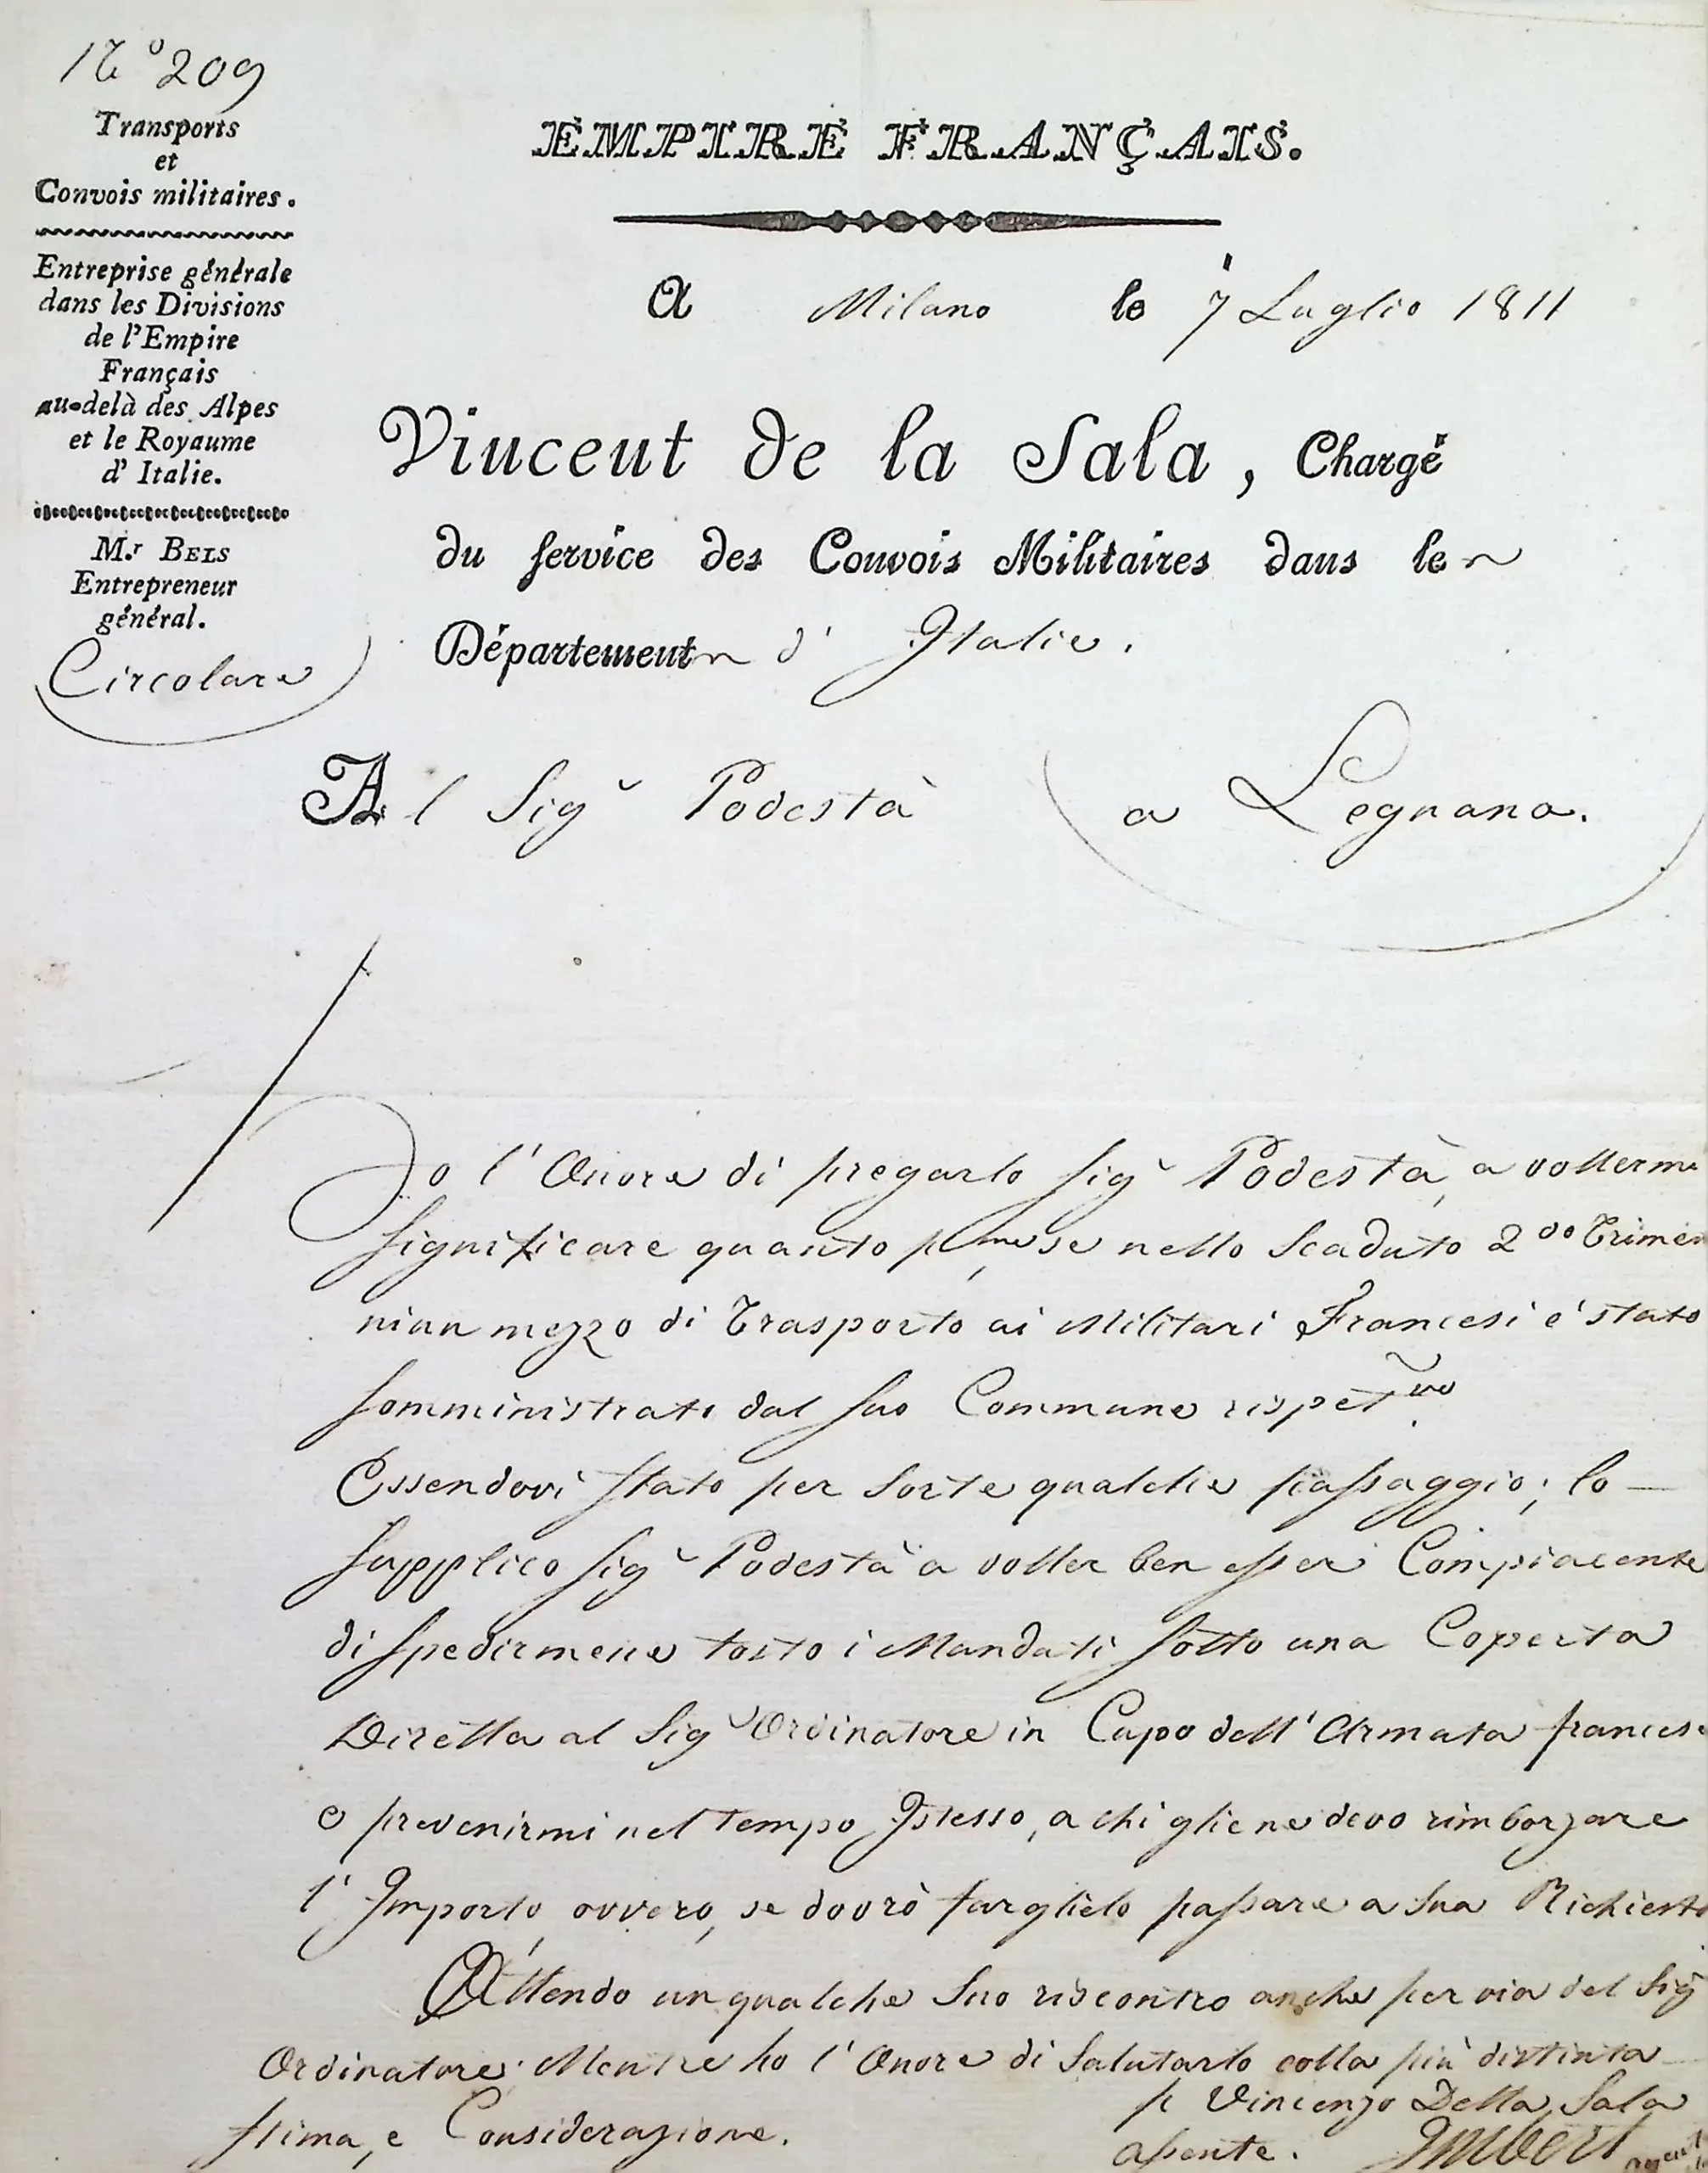 N.o 209
Transports
et
Convois militaires.
Entreprise générale
dans les Divisions
de l'Empire
Français
au-delà des Alpes
et le Royaume
d'Italie.
M.r BELS
Entrepreneur
général.
Circolare
EMPIRE FRANÇAIS.
A Milano le 7 Luglio 1811
Vincent de la Sala, Chargé
du service des Convois Militaires dans le
Département d'Italie.
Al Sigr Podestà a Legnano.
Io l'Onore di pregarlo Sigr Podestà, a vollermi
significare quanto pmo se nello Scaduto 2do Trimes
niun mezzo di Trasporto ai Militari Francesi è stato
somministrato dal suo Commune rispettvo.
Essendovi stato per sorte qualche passaggio; lo
supplico Sigr Podestà a voller ben esser Compiacente
di spedirmene tosto i Mandati sotto una Coperta
Diretta al Sigr Ordinatore in Capo dell'Armata francese
e prevenirmi nel tempo Istesso, a chi gliene devo rimborzare
l'Importo, ovvero, se dovrò farglielo passare a sua Richiesta
Attendo un qualche Suo riscontro anche per via del Sigr
Ordinatore. Mentre ho l'Onore di Salutarlo colla più distinta
stima, e Considerazione.
p Vincenzo Della Sala
assente. Imbert agent